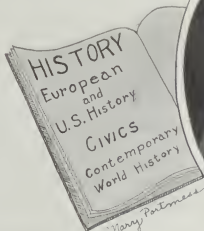 HISTORY
European
and
U.S. History
Civics
Contemporary
World History
Mary